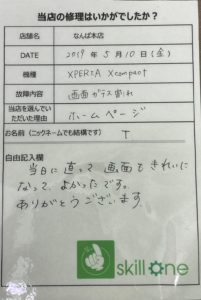 当店の修理はいかがでしたか？
店舗名 なんば本店
DATE 2019年5月10日(金)
機種 XPERIA Xcompact
故障内容 画面ガラス割れ
当店を選んでいただいた理由 ホームページ
お名前(ニックネームでも結構です) T
自由記入欄
当日に直って画面もきれいに
なって、よかったです。
ありがとうございます
skill one